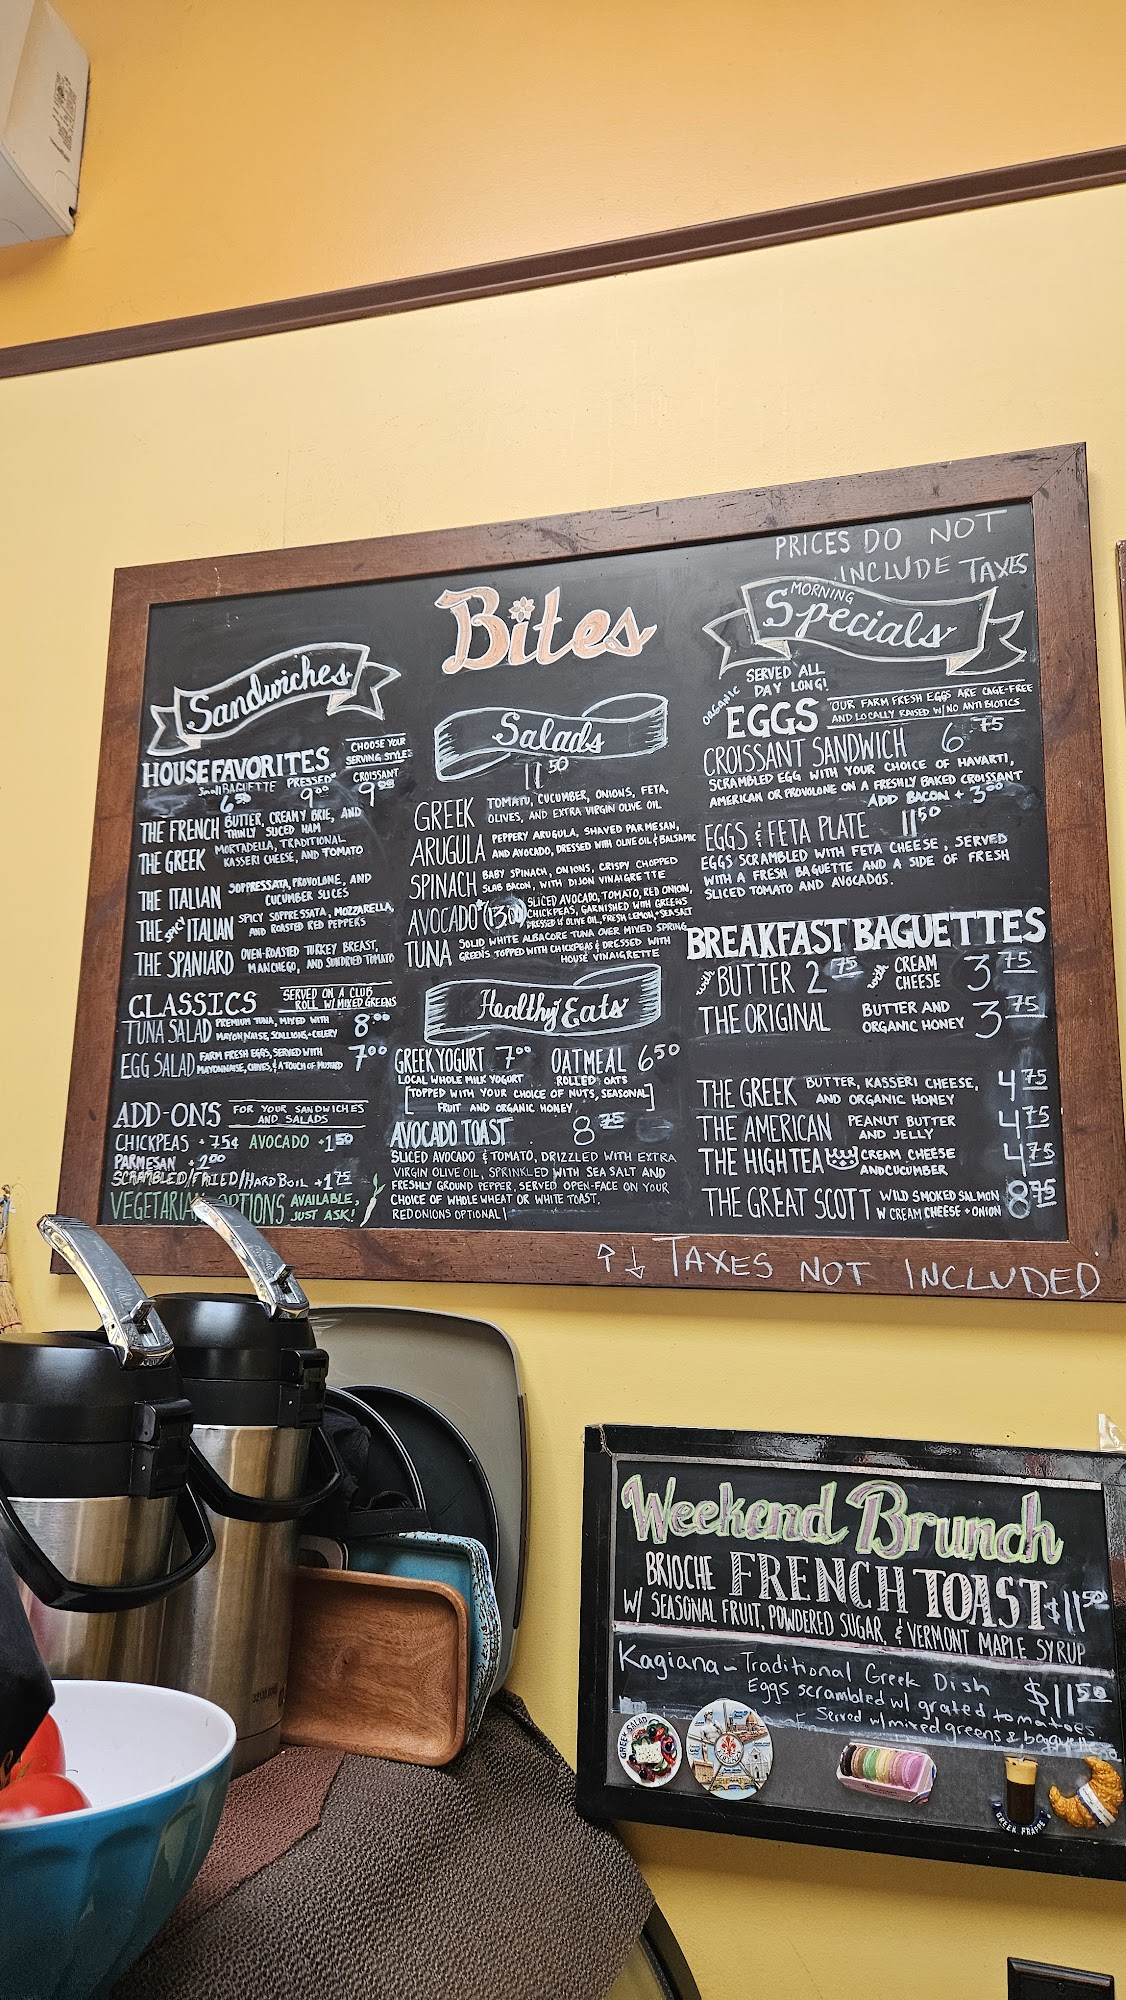 PRICES DO NOT
INCLUDE TAXES
Bites
Sandwiches
HOUSE FAVORITES
CHOOSE YOUR
SERVING STYLE:
Small BAGUETTE PRESSED* CROISSANT
6 50 9 00 9
THE FRENCH BUTTER, CREAMY BRIE, AND
THINLY SLICED HAM
THE GREEK MORTADELLA, TRADITIONAL
KASSERI CHEESE, AND TOMATO
THE ITALIAN SOPPRESSATA, PROVOLONE, AND
CUCUMBER SLICES
THE SPICY ITALIAN SPICY SOPPRESSATA, MOZZARELLA,
AND ROASTED RED PEPPERS
THE SPANIARD OVEN-ROASTED TURKEY BREAST,
MANCHEGO, AND SUNDRIED TOMATO
CLASSICS SERVED ON A CLUB
ROLL W/ MIXED GREENS
TUNA SALAD PREMIUM TUNA, MIXED WITH
MAYONNAISE, SCALLIONS, + CELERY 8 00
EGG SALAD FARM FRESH EGGS, SERVED WITH
MAYONNAISE, CHIVES, & A TOUCH OF MUSTARD 7 00
ADD-ONS FOR YOUR SANDWICHES
AND SALADS
CHICKPEAS + 75¢ AVOCADO +1 50
PARMESAN + 2 00
SCRAMBLED/FRIED/HARD BOIL +1 75
VEGETARIAN OPTIONS AVAILABLE,
JUST ASK!
Salads
11 50
GREEK TOMATO, CUCUMBER, ONIONS, FETA,
OLIVES, AND EXTRA VIRGIN OLIVE OIL
ARUGULA PEPPERY ARUGULA, SHAVED PARMESAN,
AND AVOCADO, DRESSED WITH OLIVE OIL & BALSAMIC
SPINACH BABY SPINACH, ONIONS, CRISPY CHOPPED
SLAB BACON, WITH DIJON VINAIGRETTE
AVOCADO* (13.00) SLICED AVOCADO, TOMATO, RED ONION,
CHICKPEAS, GARNISHED WITH GREENS
DRESSED W/ OLIVE OIL, FRESH LEMON, + SEA SALT
TUNA SOLID WHITE ALBACORE TUNA OVER MIXED SPRING
GREENS TOPPED WITH CHICKPEAS & DRESSED WITH
HOUSE VINAIGRETTE
Healthy Eats
GREEK YOGURT 7 00 OATMEAL 6 50
LOCAL WHOLE MILK YOGURT ROLLED OATS
[TOPPED WITH YOUR CHOICE OF NUTS, SEASONAL
FRUIT AND ORGANIC HONEY]
AVOCADO TOAST 8 75
SLICED AVOCADO & TOMATO, DRIZZLED WITH EXTRA
VIRGIN OLIVE OIL, SPRINKLED WITH SEA SALT AND
FRESHLY GROUND PEPPER, SERVED OPEN-FACE ON YOUR
CHOICE OF WHOLE WHEAT OR WHITE TOAST.
RED ONIONS OPTIONAL!
MORNING
Specials
SERVED ALL
DAY LONG!
ORGANIC
EGGS OUR FARM FRESH EGGS ARE CAGE-FREE
AND LOCALLY RAISED W/ NO ANTIBIOTICS
CROISSANT SANDWICH 6 75
SCRAMBLED EGG WITH YOUR CHOICE OF HAVARTI,
AMERICAN OR PROVOLONE ON A FRESHLY BAKED CROISSANT
ADD BACON + 3 00
EGGS & FETA PLATE 11 50
EGGS SCRAMBLED WITH FETA CHEESE, SERVED
WITH A FRESH BAGUETTE AND A SIDE OF FRESH
SLICED TOMATO AND AVOCADOS.
BREAKFAST BAGUETTES
with BUTTER 2 75 with CREAM
CHEESE 3 75
THE ORIGINAL BUTTER AND
ORGANIC HONEY 3 75
THE GREEK BUTTER, KASSERI CHEESE,
AND ORGANIC HONEY 4 75
THE AMERICAN PEANUT BUTTER
AND JELLY 4 75
THE HIGH TEA CREAM CHEESE
AND CUCUMBER 4 75
THE GREAT SCOTT WILD SMOKED SALMON
W CREAM CHEESE + ONION 8 75
↑↓ TAXES NOT INCLUDED
Weekend Brunch
BRIOCHE FRENCH TOAST $11 50
W/ SEASONAL FRUIT, POWDERED SUGAR, & VERMONT MAPLE SYRUP
Kagiana - Traditional Greek Dish $11 50
Eggs scrambled w/ grated tomatoes
Served w/ mixed greens & baguettes
GREEK SALAD
GREEK FRAPPE